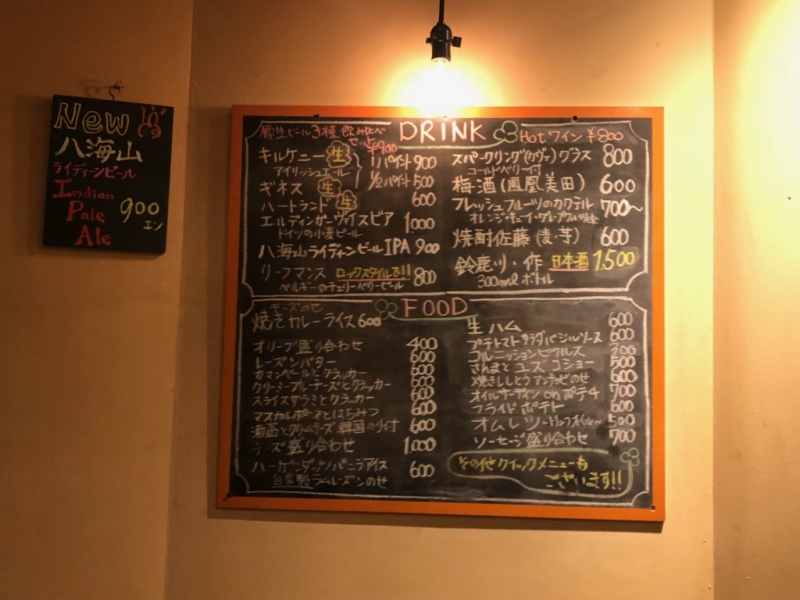 New
八海山
ライディーンビール
Indian
Pale
Ale
900
エン
DRINK
生ビール3種飲み比べ
セット ¥900
キルケニー 生
アイリッシュエール
1パイント 900
1/2パイント 500
ギネス 生
ハートランド 生 600
エルディンガーヴァイスビア 1000
ドイツの小麦ビール
八海山ライディーンビール IPA 900
リーフマンス ロックスタイル!! 800
ベルギーのチェリーベリービール
Hotワイン ¥800
スパークリング(カヴァ)グラス 800
コールドベリー付
梅酒(鳳凰美田) 600
フレッシュフルーツのカクテル 700〜
オレンジ・キーウィ・グレープフルーツ
焼酎佐藤(麦・芋) 600
鈴鹿川・作 日本酒 1,500
300mlボトル
FOOD
チーズのせ
焼きカレーライス 600
オリーブ盛り合わせ 400
レーズンバター 600
カマンベールとクラッカー 600
クリーミーブルーチーズとクラッカー 600
スライスサラミとクラッカー 600
マスカルポーネとはちみつ 600
酒盗とクリームチーズ 韓国のり付 600
チーズ盛り合わせ 1,000
ハーゲンダッツバニラアイス 600
自家製ラムレーズンのせ
生ハム 600
プチトマトサラダバジルソース 600
コルニッションピクルス
さんまとユズコショー 500
焼きししとうアンチョビのせ 600
オイルサーディン on ポテチ 700
フライドポテト 600
オムレツ 500
ソーセージ盛り合わせ 700
その他クイックメニューも
ございます!!